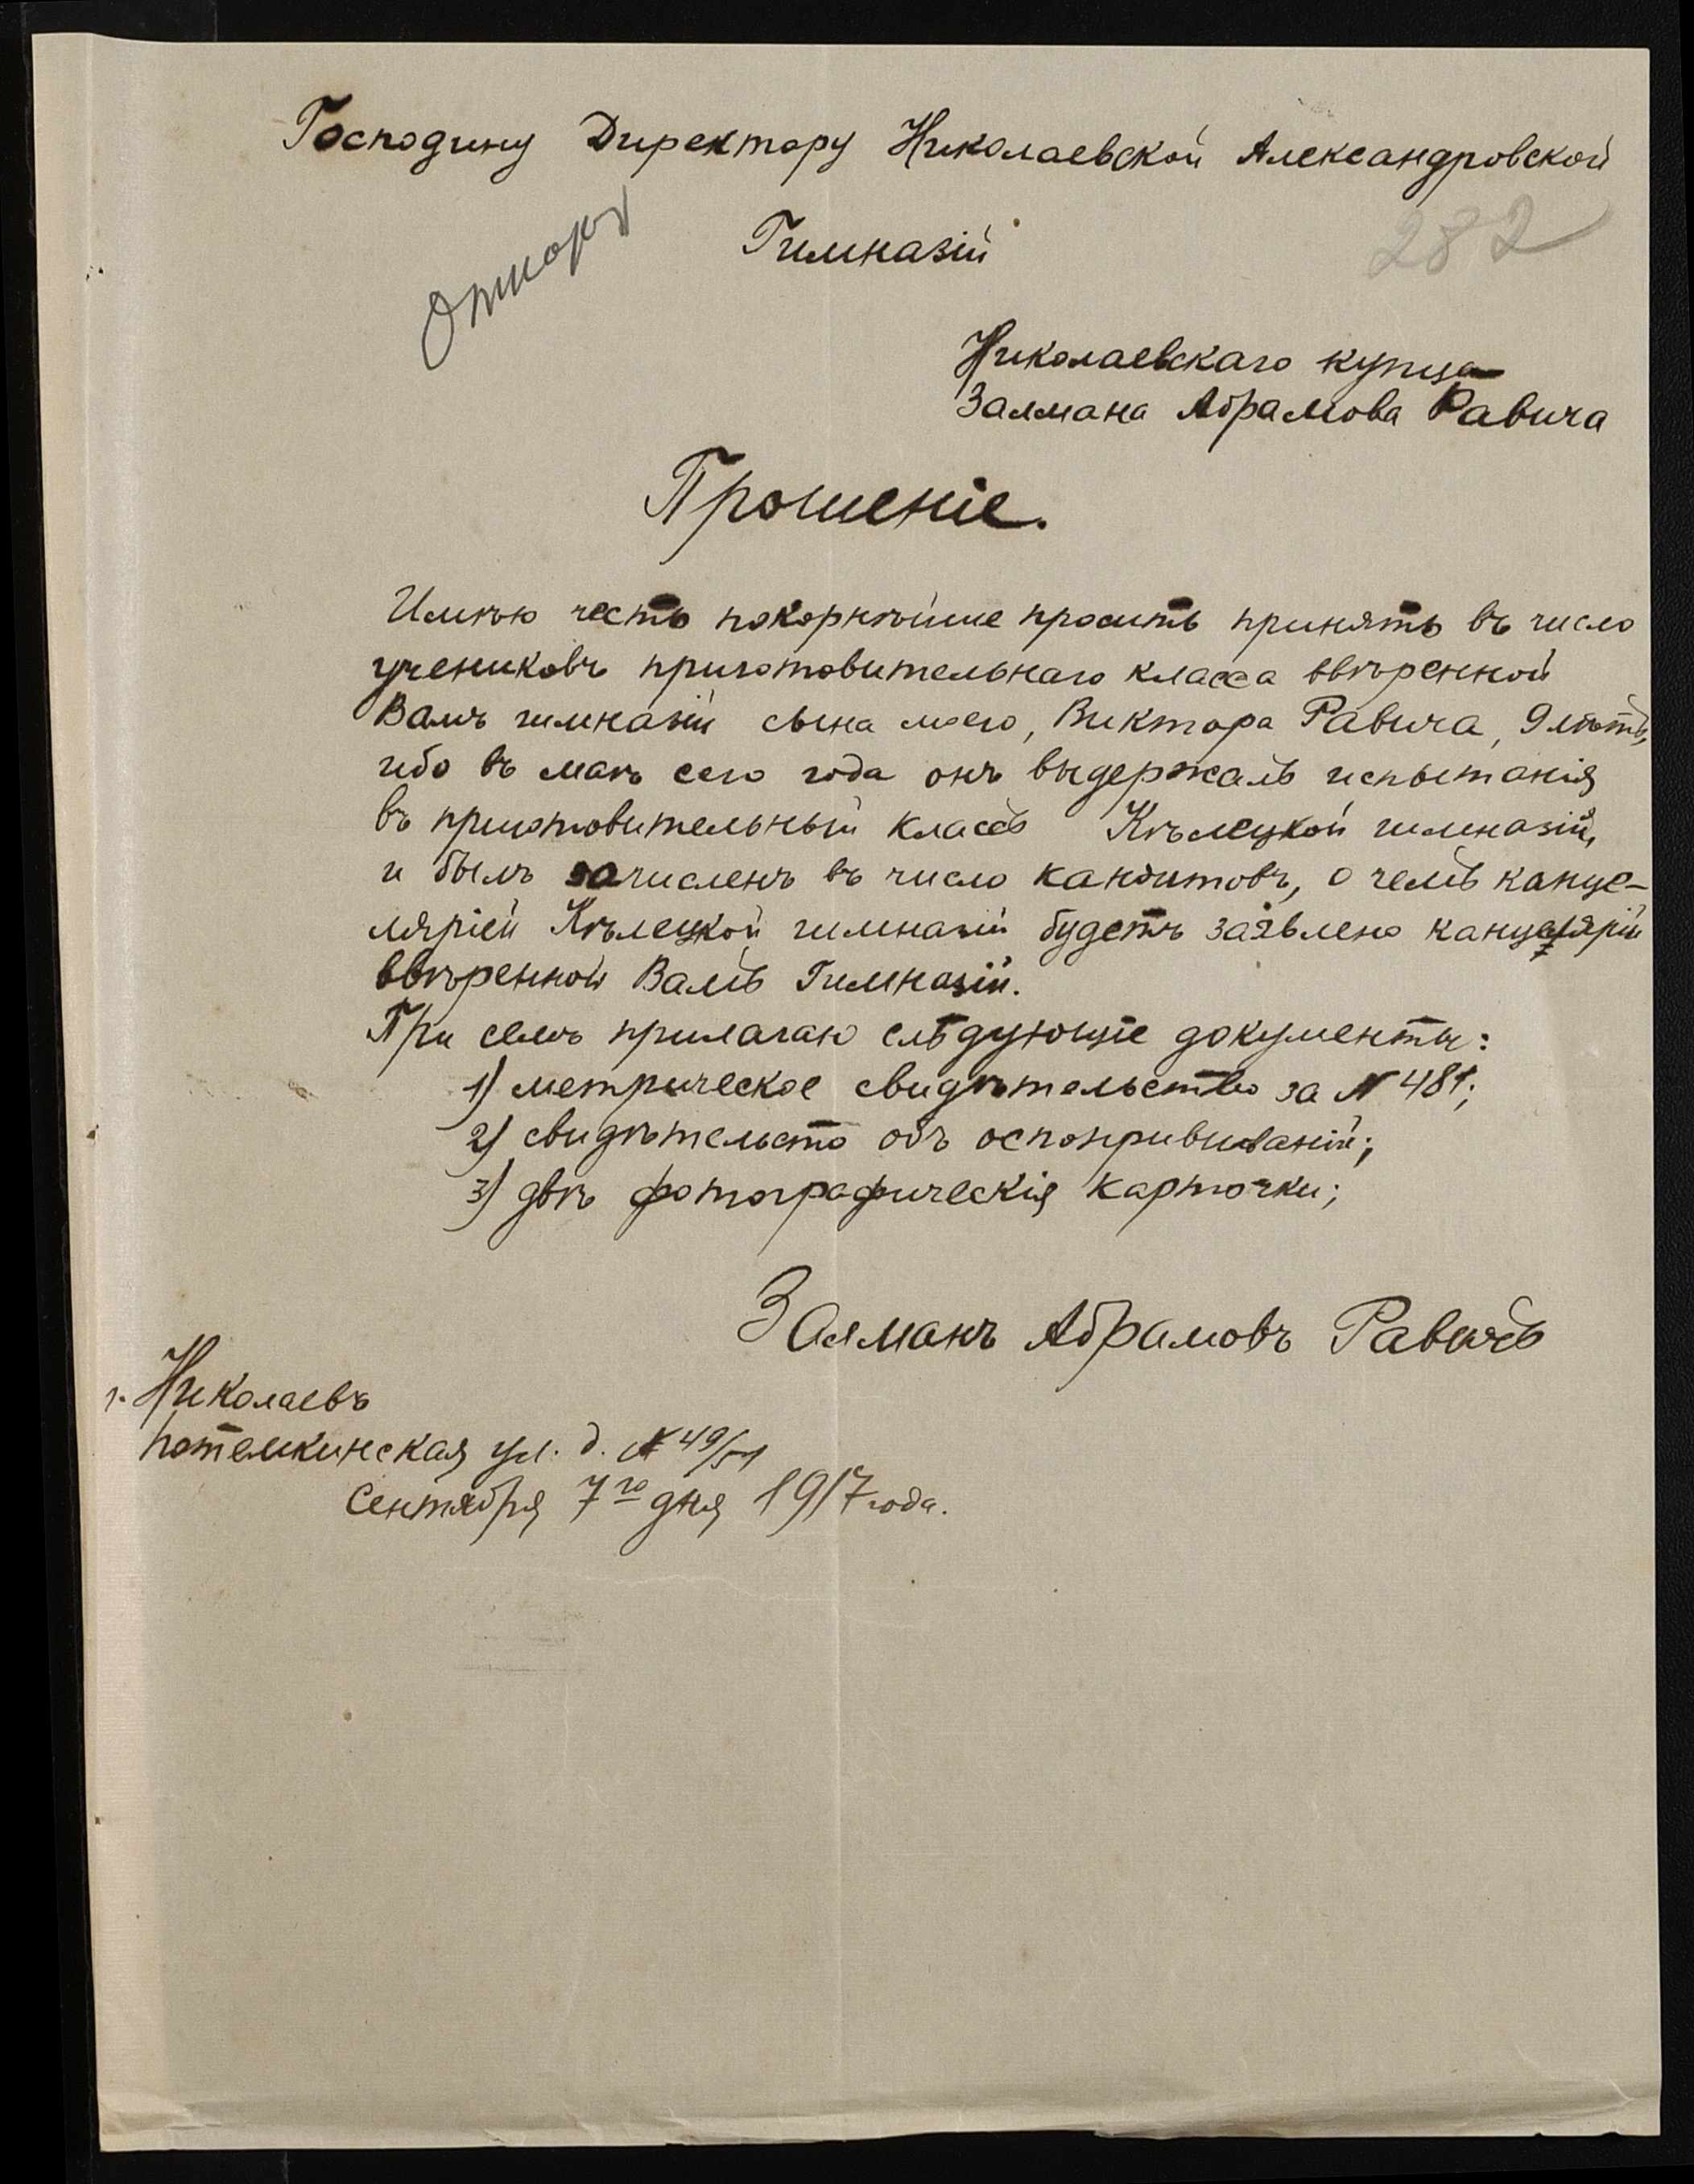 Господину Директору Николаевской Александровской
282
Гимназіи
Николаевскаго купца
Залмана Абрамова Равича
Прошеніе.
Имѣю честь покорнѣйше просить принять въ число
учениковъ приготовительнаго класса ввѣренной
Вамъ гимназіи сына моего, Виктора Равича, 9 лѣтъ,
ибо въ маѣ сего года онъ выдержалъ испытанія
въ приготовительный классъ Кѣлецкой гимназіи,
и былъ зачисленъ въ число кандитовъ, о чемъ канце-
ляріей Кѣлецкой гимназіи будетъ заявлено канцеляріи
ввѣренной Вамъ Гимназіи.
При семъ прилагаю слѣдующіе документы:
1) метрическое свидѣтельство за N 481;
2) свидѣтельсто объ оспопрививаніи;
3) двѣ фотографическія карточки;
Залманъ Абрамовъ Равичъ
г. Николаевъ
Потемкинская ул. д. № 49/51
Сентября 7го дня 1917 года.